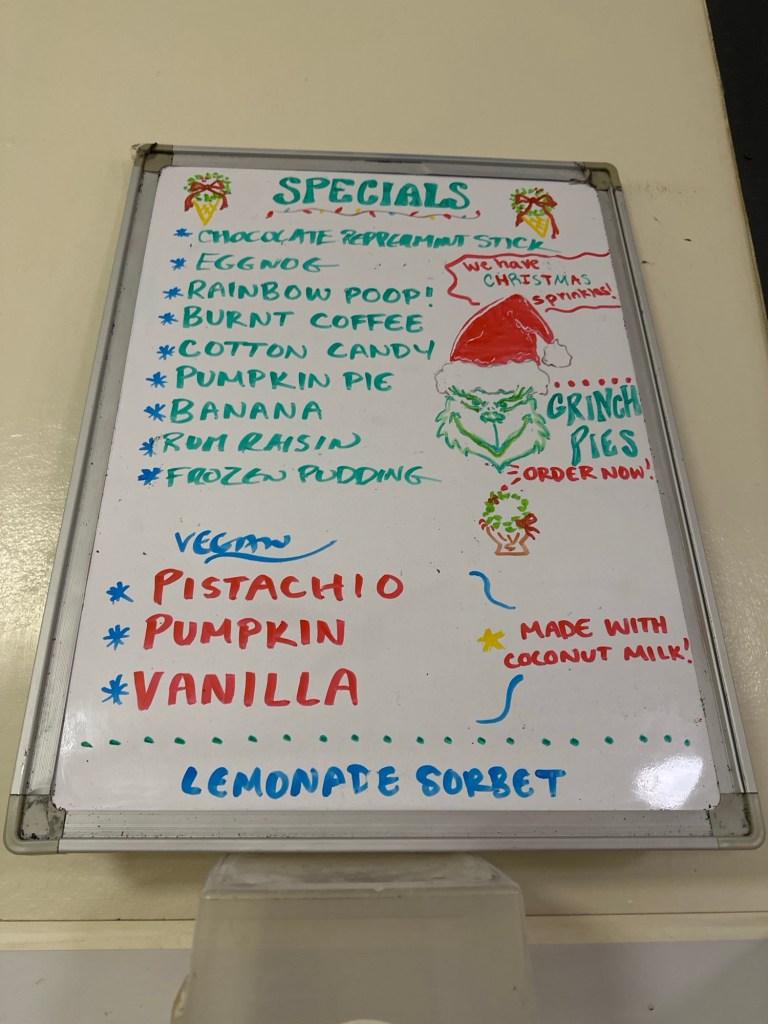 SPECIALS
* CHOCOLATE PEPPERMINT STICK
* EGGNOG
* RAINBOW POOP!
* BURNT COFFEE
* COTTON CANDY
* PUMPKIN PIE
* BANANA
* RUM RAISIN
* FROZEN PUDDING
We have
CHRISTMAS
sprinkles!
GRINCH
PIES
ORDER NOW!
VEGAN
* PISTACHIO
* PUMPKIN
* VANILLA
MADE WITH
COCONUT MILK!
LEMONADE SORBET